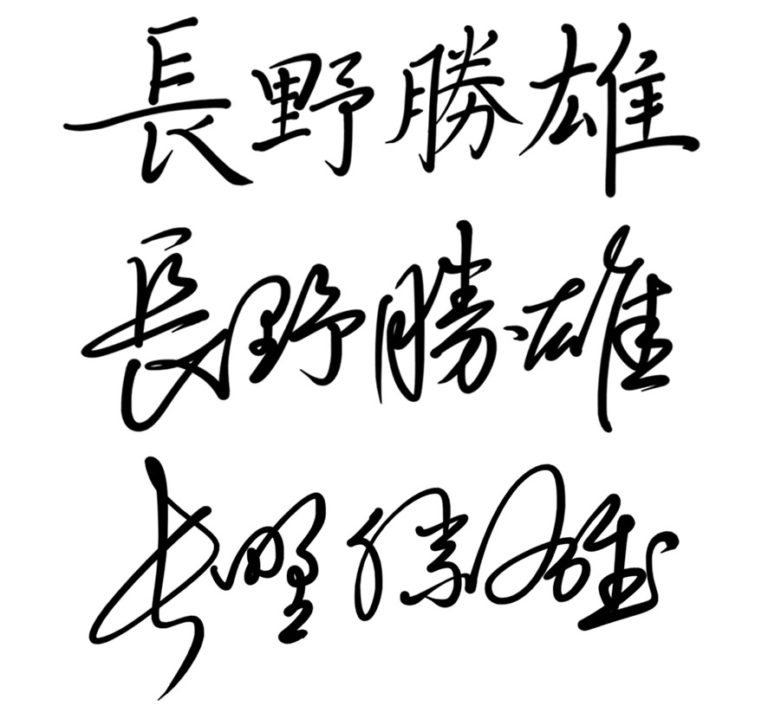 長野勝雄
長野勝雄
長野勝雄